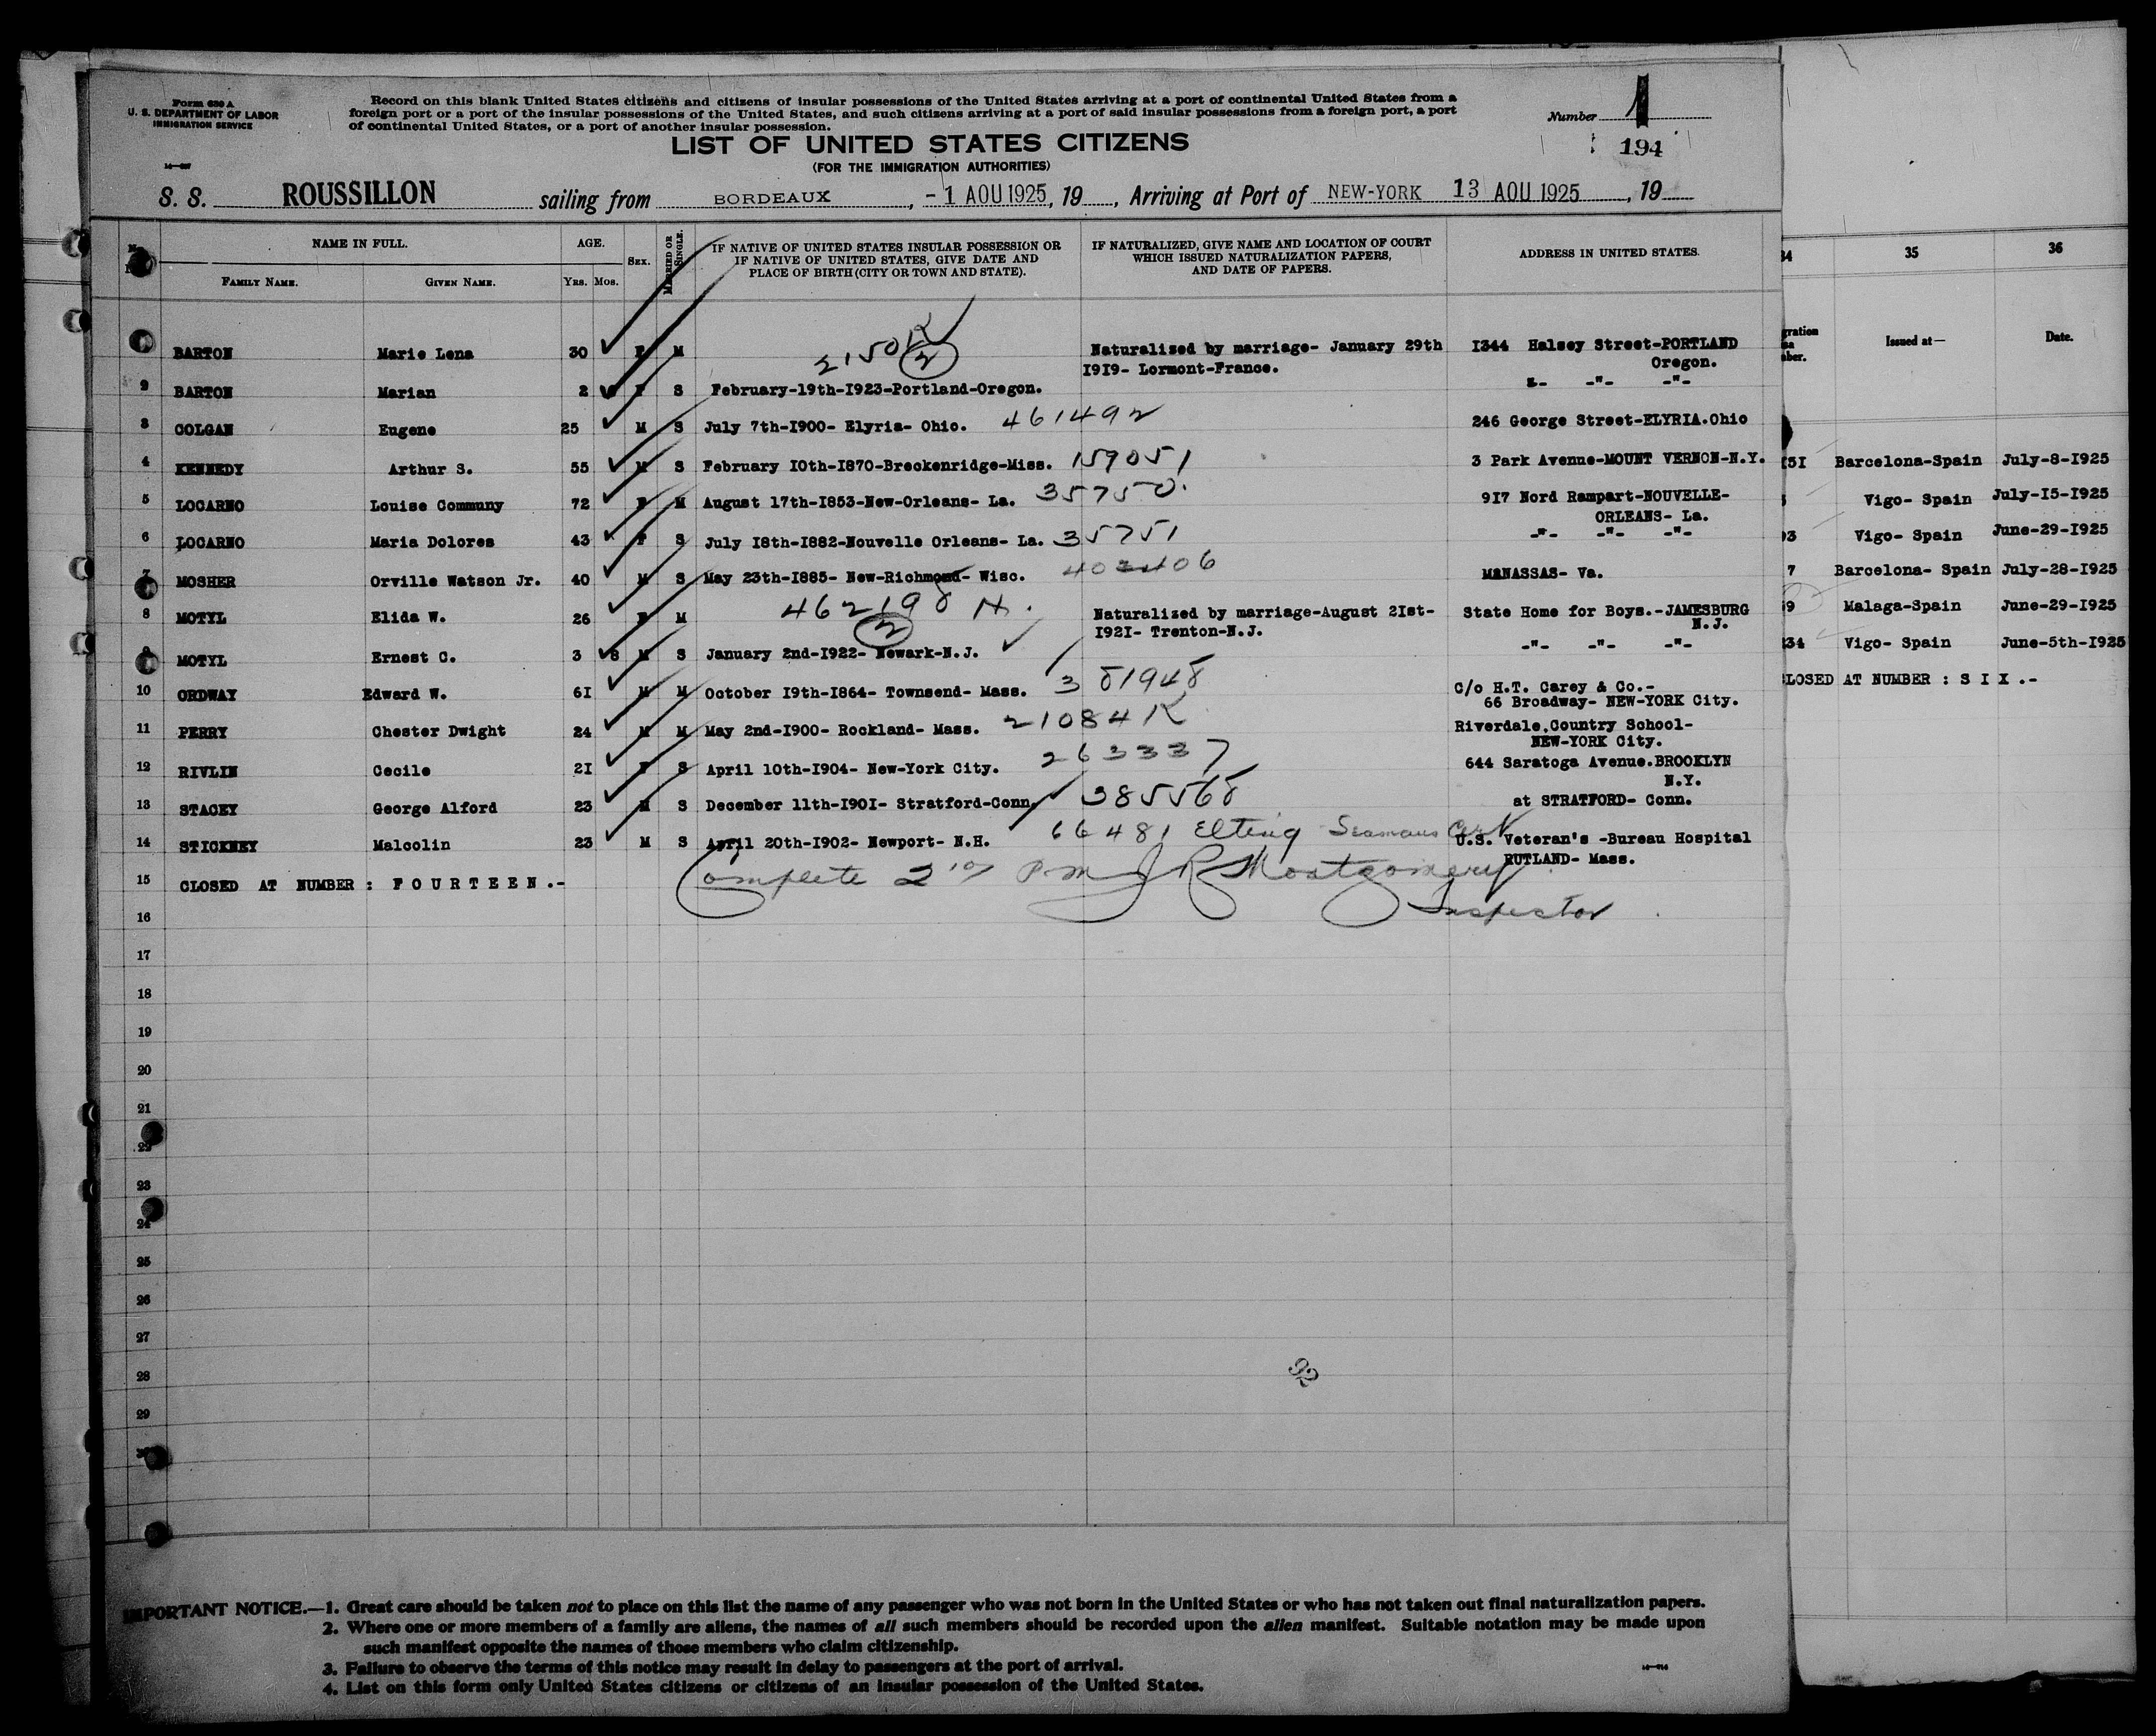 Form 630 A
U. S. DEPARTMENT OF LABOR
IMMIGRATION SERVICE
Record on this blank United States citizens and citizens of insular possessions of the United States arriving at a port of continental United States from a
foreign port or a port of the insular possessions of the United States, and such citizens arriving at a port of said insular possessions from a foreign port, a port
of continental United States, or a port of another insular possession.
Number 1
194
LIST OF UNITED STATES CITIZENS
(FOR THE IMMIGRATION AUTHORITIES)
S. S. ROUSSILLON sailing from BORDEAUX, -1 AOU 1925, 19, Arriving at Port of NEW-YORK 13 AOU 1925, 19
NAME IN FULL. AGE. SEX. MARRIED OR SINGLE. IF NATIVE OF UNITED STATES INSULAR POSSESSION OR IF NATIVE OF UNITED STATES, GIVE DATE AND PLACE OF BIRTH (CITY OR TOWN AND STATE). IF NATURALIZED, GIVE NAME AND LOCATION OF COURT WHICH ISSUED NATURALIZATION PAPERS, AND DATE OF PAPERS. ADDRESS IN UNITED STATES.
FAMILY NAME. GIVEN NAME. YRS. MOS.
2150K
2
BARTON Marie Lena 30 F M Naturalized by marriage- January 29th I344 Halsey Street-PORTLAND
I9I9- Lormont-France. Oregon.
2 BARTON Marian 2 F S February-19th-I923-Portland-Oregon. -"- -"- -"-
3 COLGAN Eugene 25 M S July 7th-I900- Elyria- Ohio. 461492 246 George Street-ELYRIA.Ohio
4 KENNEDY Arthur S. 55 M S February I0th-I870-Breckenridge-Miss. 159051 3 Park Avenue-MOUNT VERNON-N.Y.
5 LOCARNO Louise Communy 72 F M August 17th-I853-New-Orleans- La. 35750. 9I7 Nord Rampart-NOUVELLE-
ORLEANS- La.
6 LOCARNO Maria Dolores 43 F S July I8th-I882-Nouvelle Orleans- La. 35751 -"- -"- -"-
7 MOSHER Orville Watson Jr. 40 M S May 23th-I885- New-Richmond- Wisc. 402406 MANASSAS- Va.
462198 H.
2
8 MOTYL Elida W. 26 F M Naturalized by marriage-August 2Ist- State Home for Boys.-JAMESBURG
I92I- Trenton-N.J. N.J.
9 MOTYL Ernest C. 3 8 M S January 2nd-I922- Newark-N.J. -"- -"- -"-
10 ORDWAY Edward W. 6I M M October I9th-I864- Townsend- Mass. 381948 c/o H.T. Carey & Co.-
66 Broadway- NEW-YORK City.
11 PERRY Chester Dwight 24 M M May 2nd-I900- Rockland- Mass. 21084K Riverdale.Country School-
NEW-YORK City.
12 RIVLIN Cecile 2I F S April I0th-I904- New-York City. 263337 644 Saratoga Avenue.BROOKLYN
N.Y.
13 STACEY George Alford 23 M S December 11th-I90I- Stratford-Conn. 385568 at STRATFORD- Conn.
14 STICKNEY Malcolin 23 M S April 20th-I902- Newport- N.H. 66481 Elting Seamans U.S. Veteran's -Bureau Hospital
RUTLAND- Mass.
Complete P.M J R Montgomery
Inspector
15 CLOSED AT NUMBER : F O U R T E E N .-
16
17
18
19
20
21
22
23
24
25
26
27
28
29
92
34 35 36
Issued at— Date.
Barcelona-Spain July-8-I925
Vigo- Spain July-I5-I925
Vigo- Spain June-29-I925
7 Barcelona- Spain July-28-I925
Malaga-Spain June-29-I925
34 Vigo- Spain June-5th-I925
CLOSED AT NUMBER : S I X .-
IMPORTANT NOTICE.—1. Great care should be taken not to place on this list the name of any passenger who was not born in the United States or who has not taken out final naturalization papers.
2. Where one or more members of a family are aliens, the names of all such members should be recorded upon the alien manifest. Suitable notation may be made upon
such manifest opposite the names of those members who claim citizenship.
3. Failure to observe the terms of this notice may result in delay to passengers at the port of arrival.
4. List on this form only United States citizens or citizens of an insular possession of the United States.